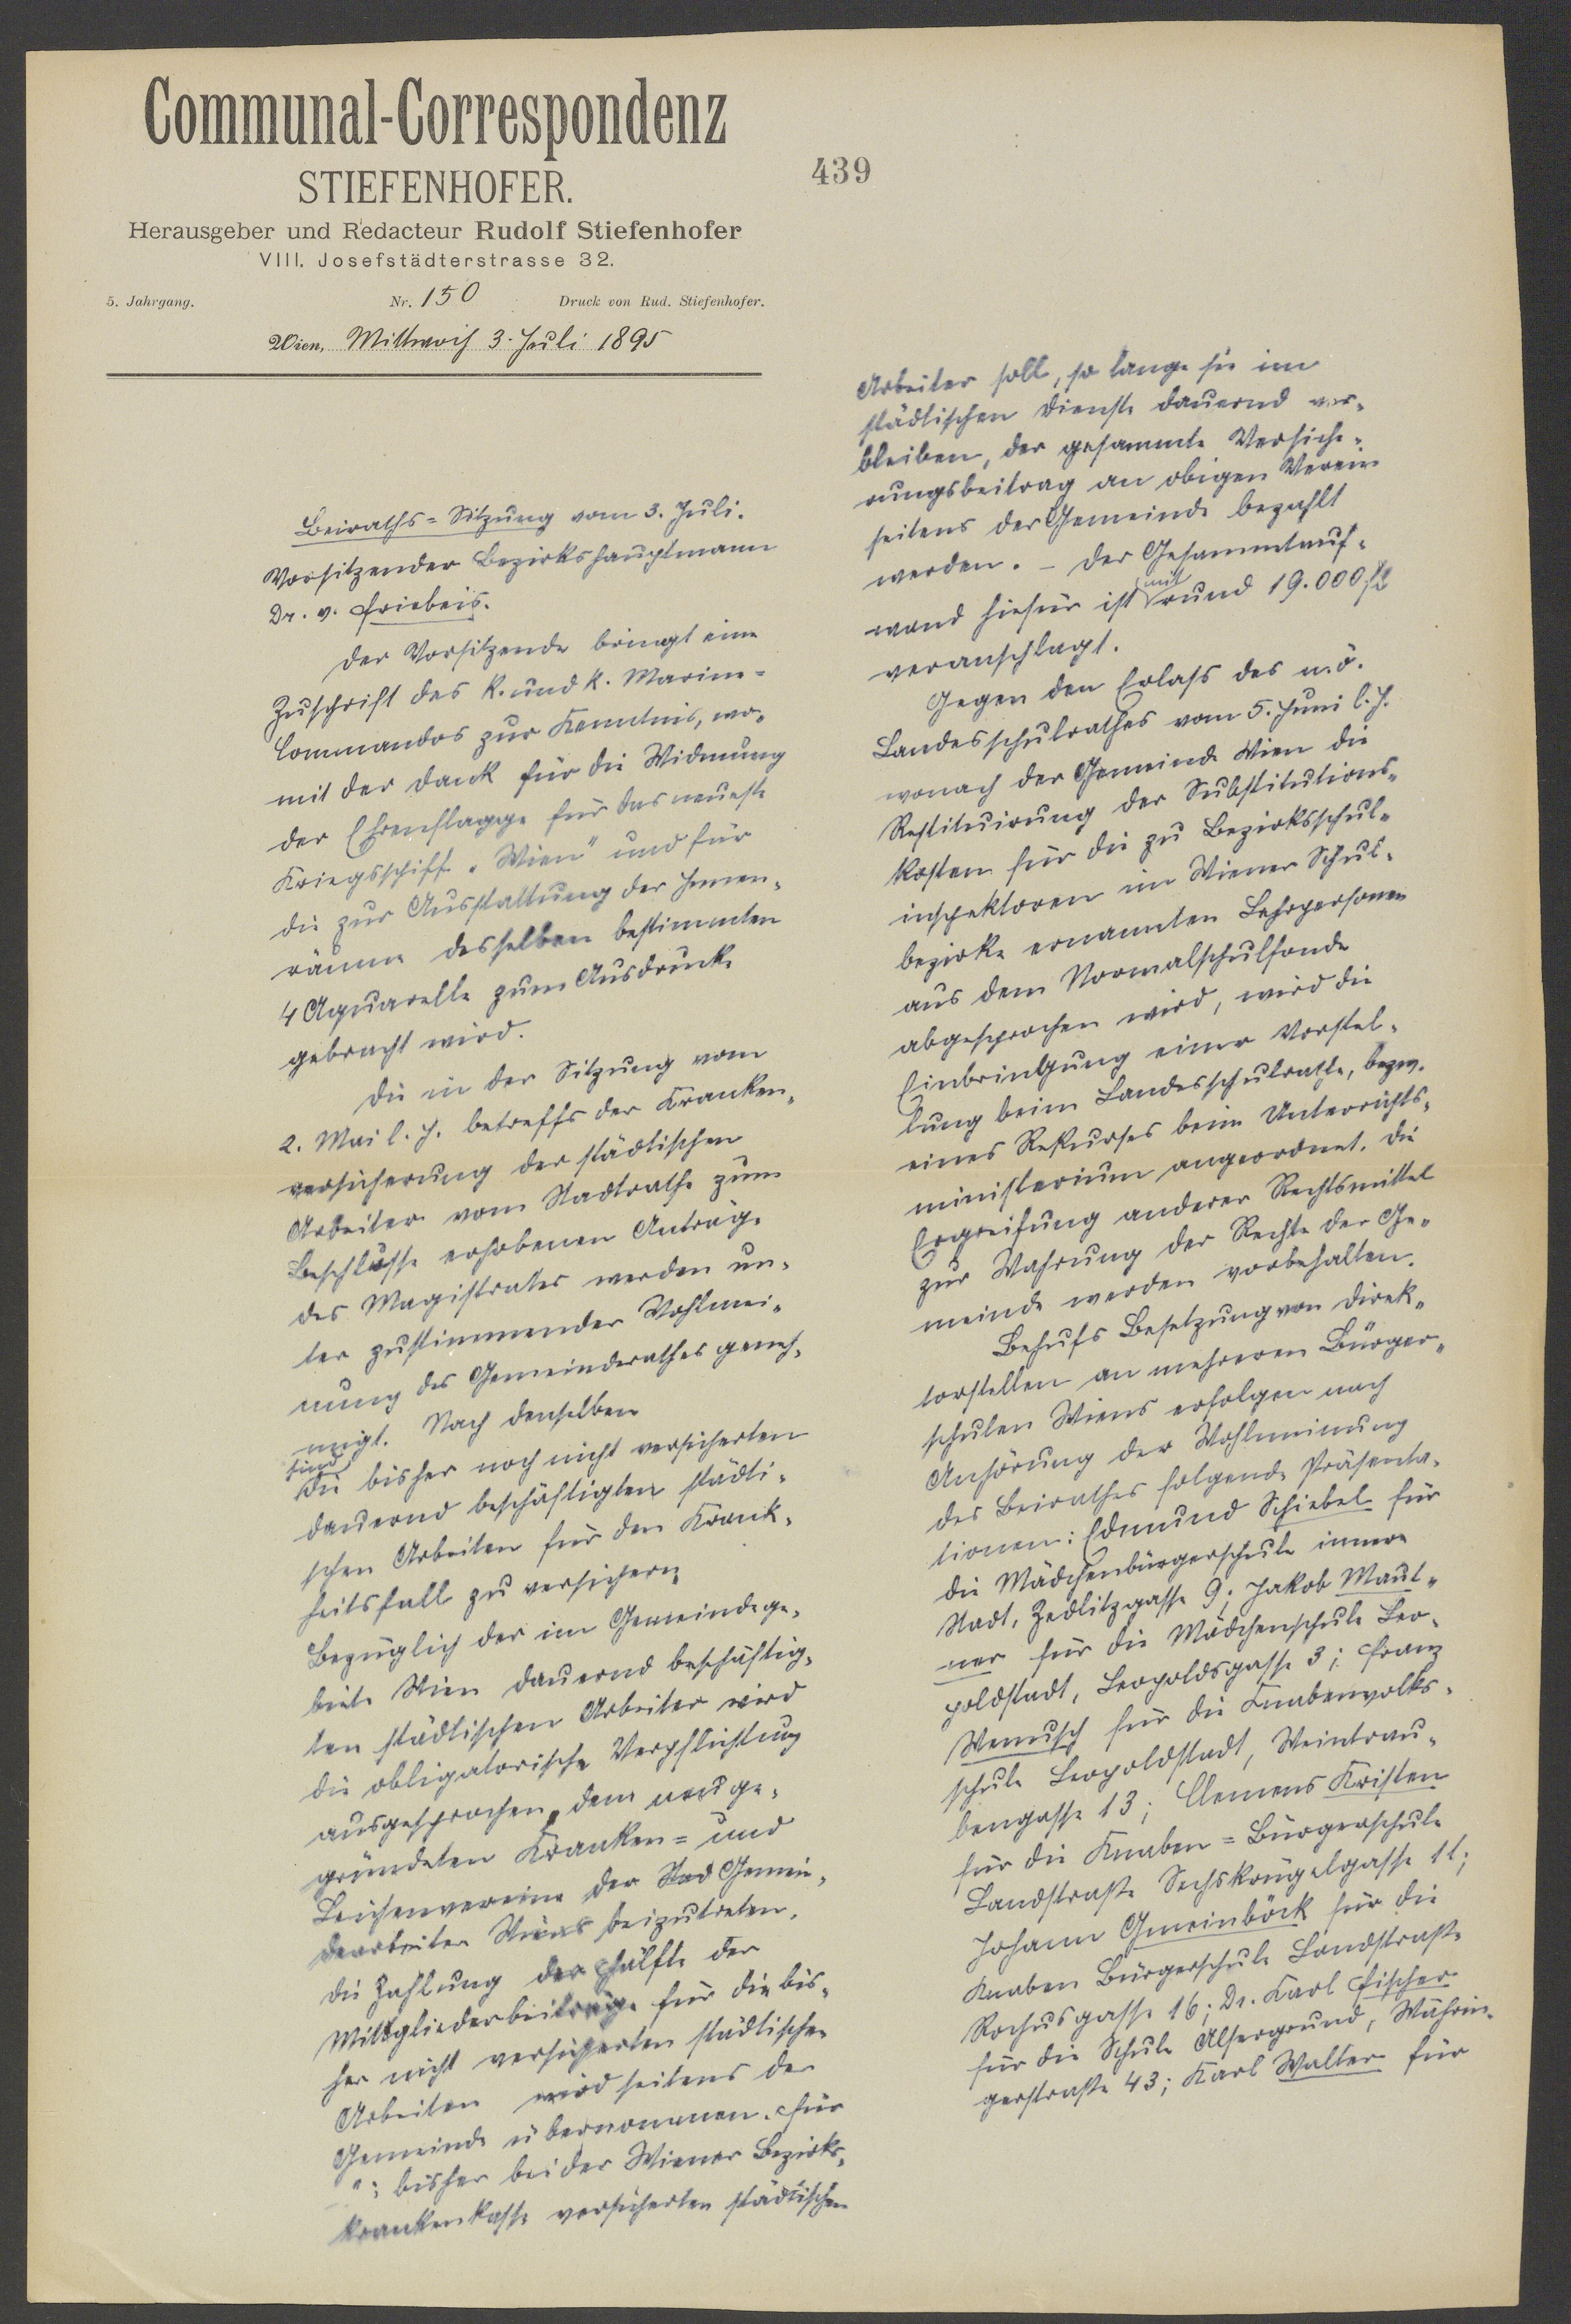 Communal-Correspondenz
STIEFENHOFER.
Herausgeber und Redacteur Rudolf Stiefenhofer
VIII. Josefstädterstrasse 32.
5. Jahrgang. Nr. 150 Druck von Rud. Stiefenhofer.
Wien, Mittwoch 3. Juli 1895
439
Beiraths=Sitzung vom 3. Juli.
Vorsitzender Bezirkshauptmann
Dr. v. Friebeis.
Der Vorsitzende bringt eine
Zuschrift des k. und k. Marine=
Commandos zur Kenntnis, wo-
mit der Dank für die Widmung
der Ehrenflagge für das neueste
Kriegsschiff „Wien" und für
die zur Ausstattung der Innen-
räume desselben bestimmten
4 Aquarelle zum Ausdrucke
gebracht wird.
Die in der Sitzung vom
2. Mai l. J. betreffs der Kranken-
versicherung der städtischen
Arbeiter vom Stadtrathe zum
Beschlusse erhobenen Anträge
des Magistrates werden un-
ter zustimmender Wohlmei-
nung des Gemeinderathes geneh-
migt. Nach denselben
sind
die bisher noch nicht versicherten
dauernd beschäftigten städti-
schen Arbeiter für den Krank-
heitsfall zu versichern
Bezüglich der im Gemeindege-
biete Wien dauernd beschäftig-
ten städtischen Arbeiter wird
die obligatorische Verpflichtung
ausgesprochen, dem neu ge-
gründeten Kranken= und
Leichenvereine der Stad Gemein-
dearbeiter Wiens beizutreten.
Die Zahlung der Hälfte der
Mitgliederbeiträge für die bis-
her nicht versicherten städtischen
Arbeiter wird seitens der
Gemeinde übernommen. Für
bisher bei der Wiener Bezirks-
krankenkasse versicherten städtischen
Arbeiter soll, so lange sie im
städtischen Dienste dauernd ver-
bleiben, der gesammte Versiche-
rungsbeitrag an obigen Verein
seitens der Gemeinde bezahlt
werden. – Der Gesammtauf-
wand hiefür ist mit rund 19.000 fl
veranschlagt.
Gegen den Erlass des n.ö.
Landesschulrathes vom 5. Juni l. J.
wonach der Gemeinde Wien die
Restituirung der Substitutions-
kosten für die zu Bezirksschul-
inspektoren im Wiener Schul-
bezirke ernannten Lehrpersonen
aus dem Normalschulfonde
abgesprochen wird, wird die
Einbringung einer Vorstel-
lung beim Landesschulrathe, bezw.
eines Rekurses beim Unterrichts-
ministerium angeordnet. Die
Ergreifung anderer Rechtsmittel
zur Wahrung der Rechte der Ge-
meinde werden vorbehalten.
Behufs Besetzung von Direk-
torstellen an mehreren Bürger-
schulen Wiens erfolgen nach
Anhörung der Wohlmeinung
des Beirathes folgende Präsenta-
tionen: Edmund Schiebel für
die Mädchenbürgerschule innere
Stadt, Zedlitzgasse 9; Jakob Maut-
ner für die Mädchenschule Leo-
poldstadt, Leopoldsgasse 3; Franz
Wenusch für die Knabenvolks-
schule Leopoldstadt, Weintrau-
bengasse 13; Clemens Kristen
für die Knaben=Bürgerschule
Landstraße Sechskrügelgasse 11;
Johann Gmeinböck für die
Knaben Bürgerschule Landstraße
Rochusgasse 16; Dr. Karl Fischer
für die Schule Alsergrund, Währin-
gerstraße 43; Karl Walter für